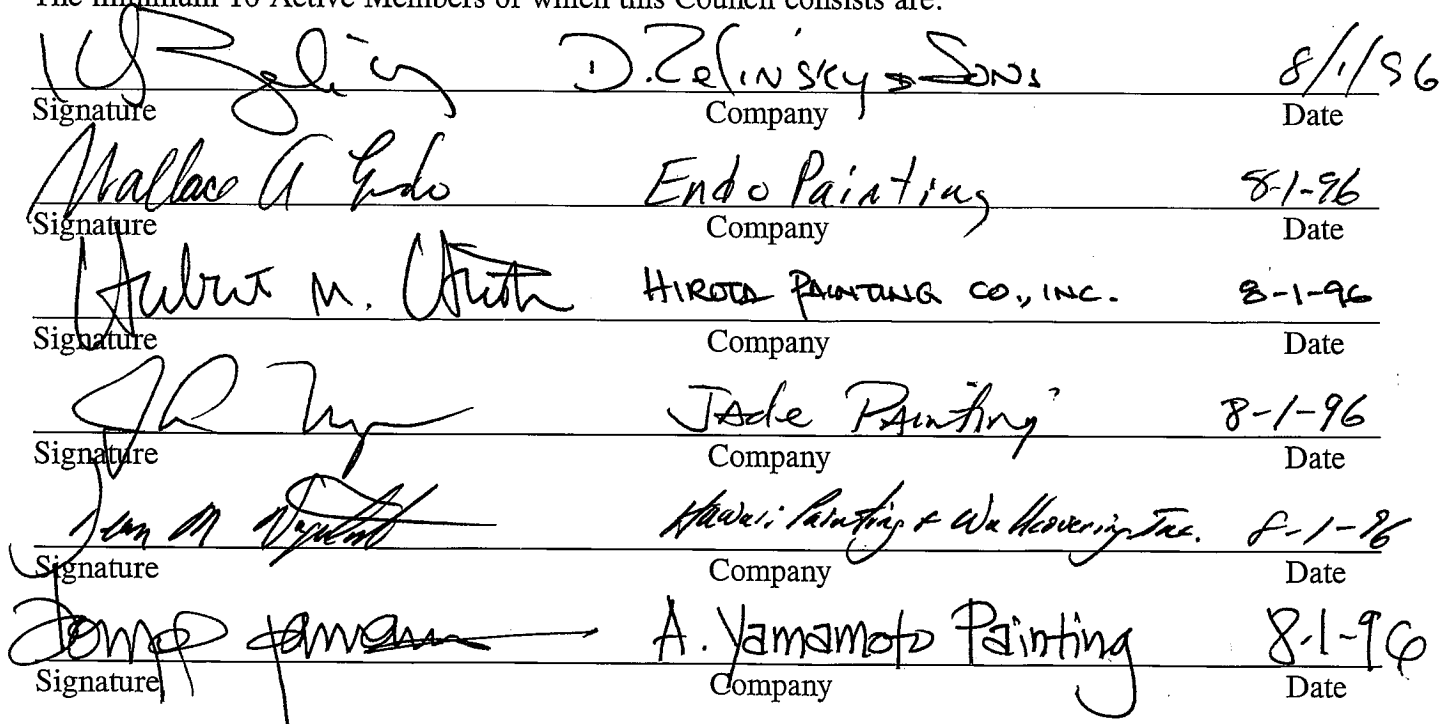 The minimum 10 Active Members of which this Council consists are:
D. Zelinsky & Sons 8/1/96
Signature Company Date
Wallace A Endo Endo Painting 8-1-96
Signature Company Date
M. HIROTA PAINTING CO., INC. 8-1-96
Signature Company Date
Jade Painting 8-1-96
Signature Company Date
M Hawaii Painting & Wallcovering Inc. 8-1-96
Signature Company Date
A. Yamamoto Painting 8-1-96
Signature Company Date